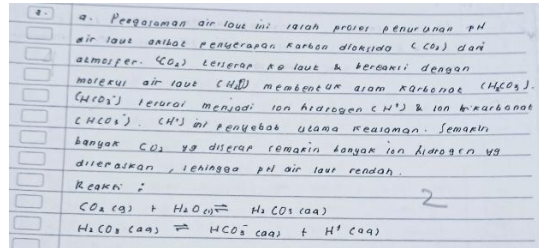 a. Pengasaman air laut ini ialah proses penurunan pH
air laut akibat penyerapan karbon dioksida (CO₂) dari
atmosfer. (CO₂) terserap ke laut & bereaksi dengan
molekul air laut (H₂O) membentuk asam karbonat (H₂CO₃).
(HCO₃⁻) terurai menjadi ion hidrogen (H⁺) & ion bikarbonat
(HCO₃⁻). (H⁺) ini penyebab utama keasaman. Semakin
banyak CO₂ yg diserap semakin banyak ion hidrogen yg
dilepaskan, sehingga pH air laut rendah.
Reaksi :
2
CO₂ (g) + H₂O (l) ⇌ H₂CO₃ (aq)
H₂CO₃ (aq) ⇌ HCO₃⁻ (aq) + H⁺ (aq)